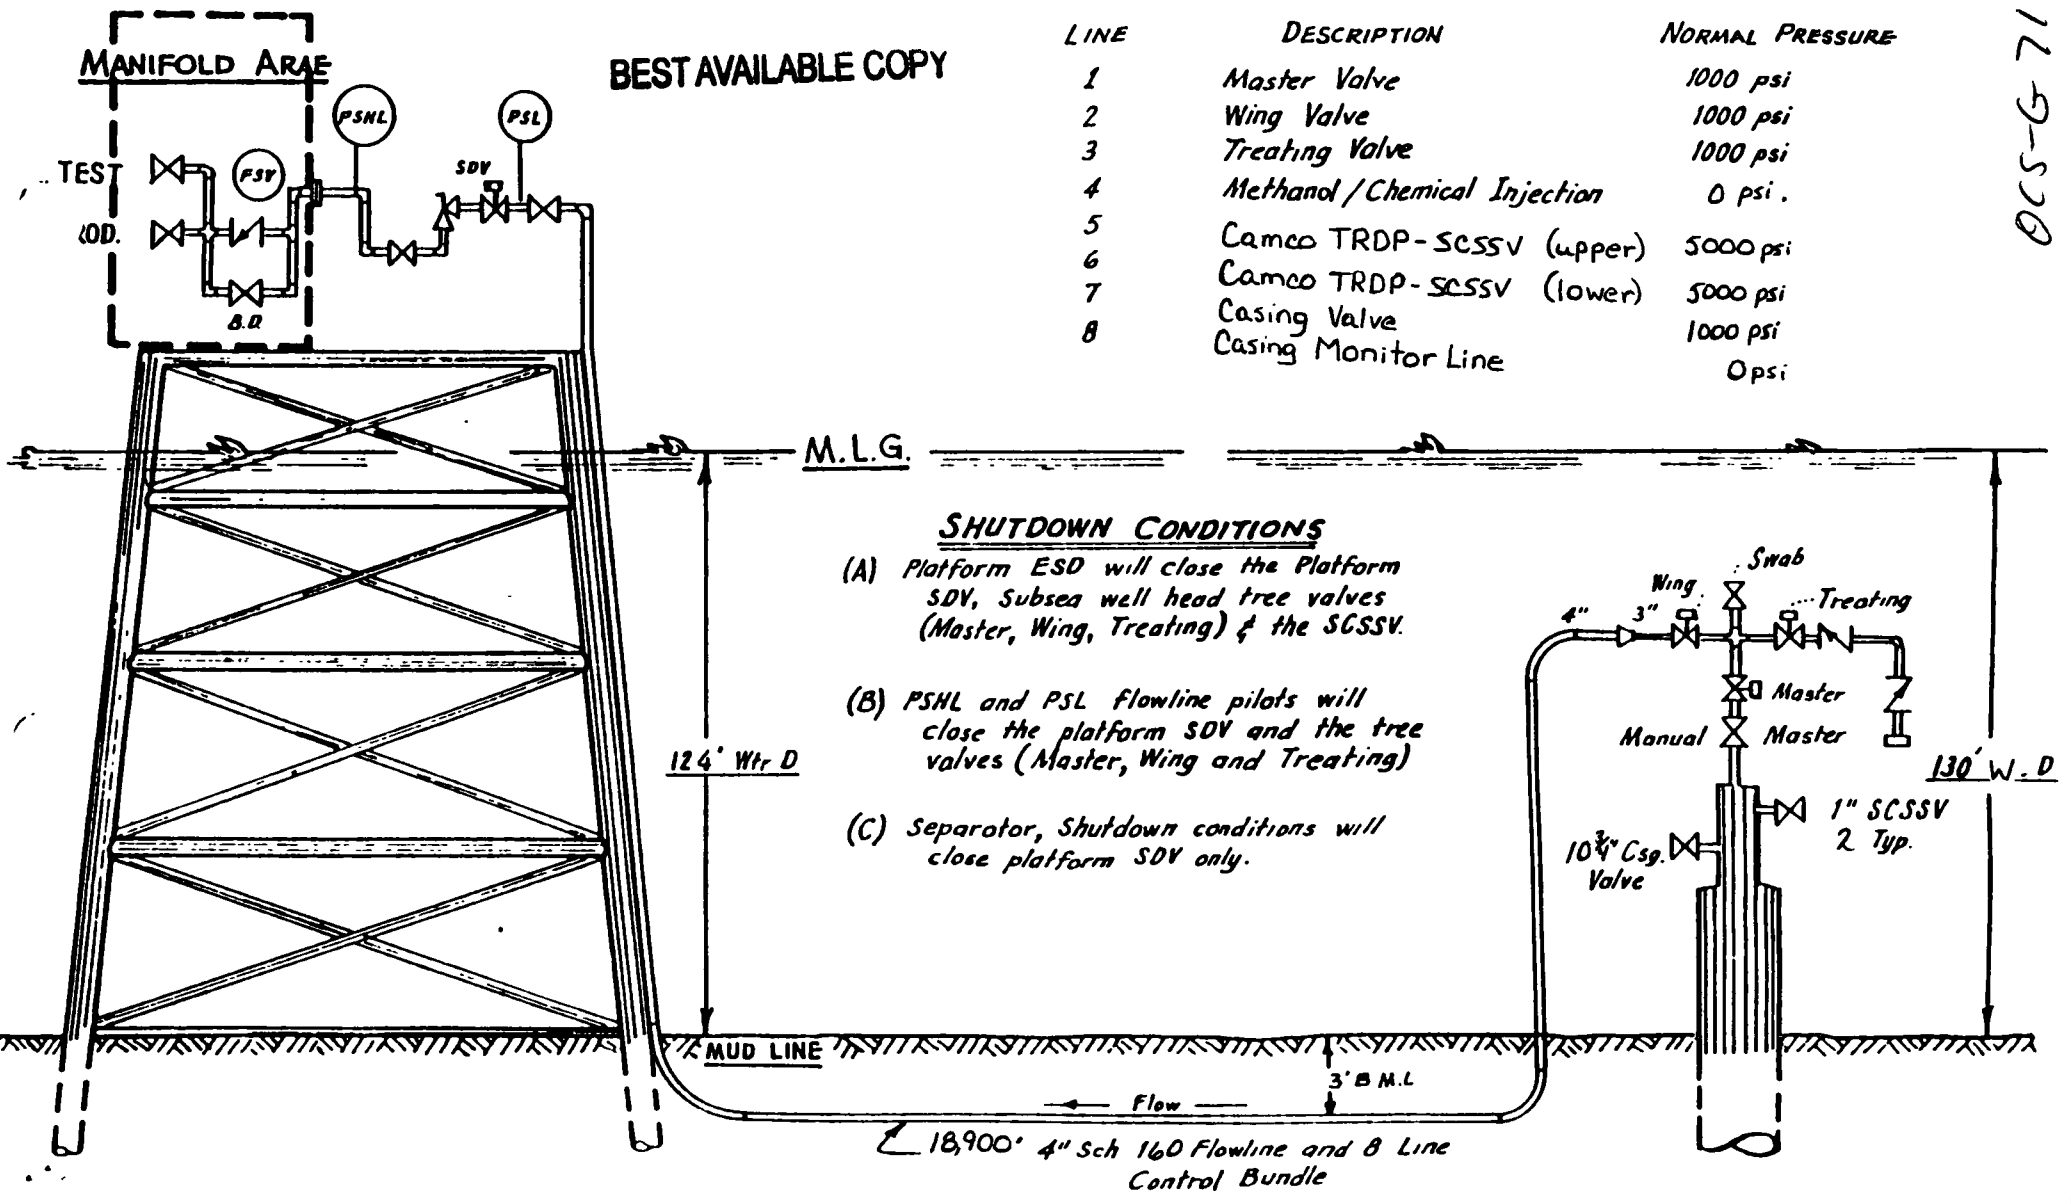 MANIFOLD ARAE
BEST AVAILABLE COPY
LINE DESCRIPTION NORMAL PRESSURE
1 Master Valve 1000 psi
2 Wing Valve 1000 psi
3 Treating Valve 1000 psi
4 Methanol/Chemical Injection 0 psi.
5 Camco TRDP-SCSSV (upper) 5000 psi
6 Camco TRDP-SCSSV (lower) 5000 psi
7 Casing Valve 1000 psi
8 Casing Monitor Line 0 psi
OCS-G 71
PSHL
PSL
TEST
FSV
SDV
ROD.
B.D.
M.L.G.
SHUTDOWN CONDITIONS
(A) Platform ESD will close the Platform
SDV, Subsea well head tree valves
(Master, Wing, Treating) & the SCSSV.
(B) PSHL and PSL flowline pilots will
close the platform SDV and the tree
valves (Master, Wing and Treating)
(C) Separator, Shutdown conditions will
close platform SDV only.
124' Wtr D
Swab
Wing
Treating
4" 3"
Master
Manual Master
130' W.D
1" SCSSV
2 Typ.
10 3/4" Csg.
Valve
MUD LINE
3' B M.L
Flow
18,900' 4" Sch 160 Flowline and 8 Line
Control Bundle